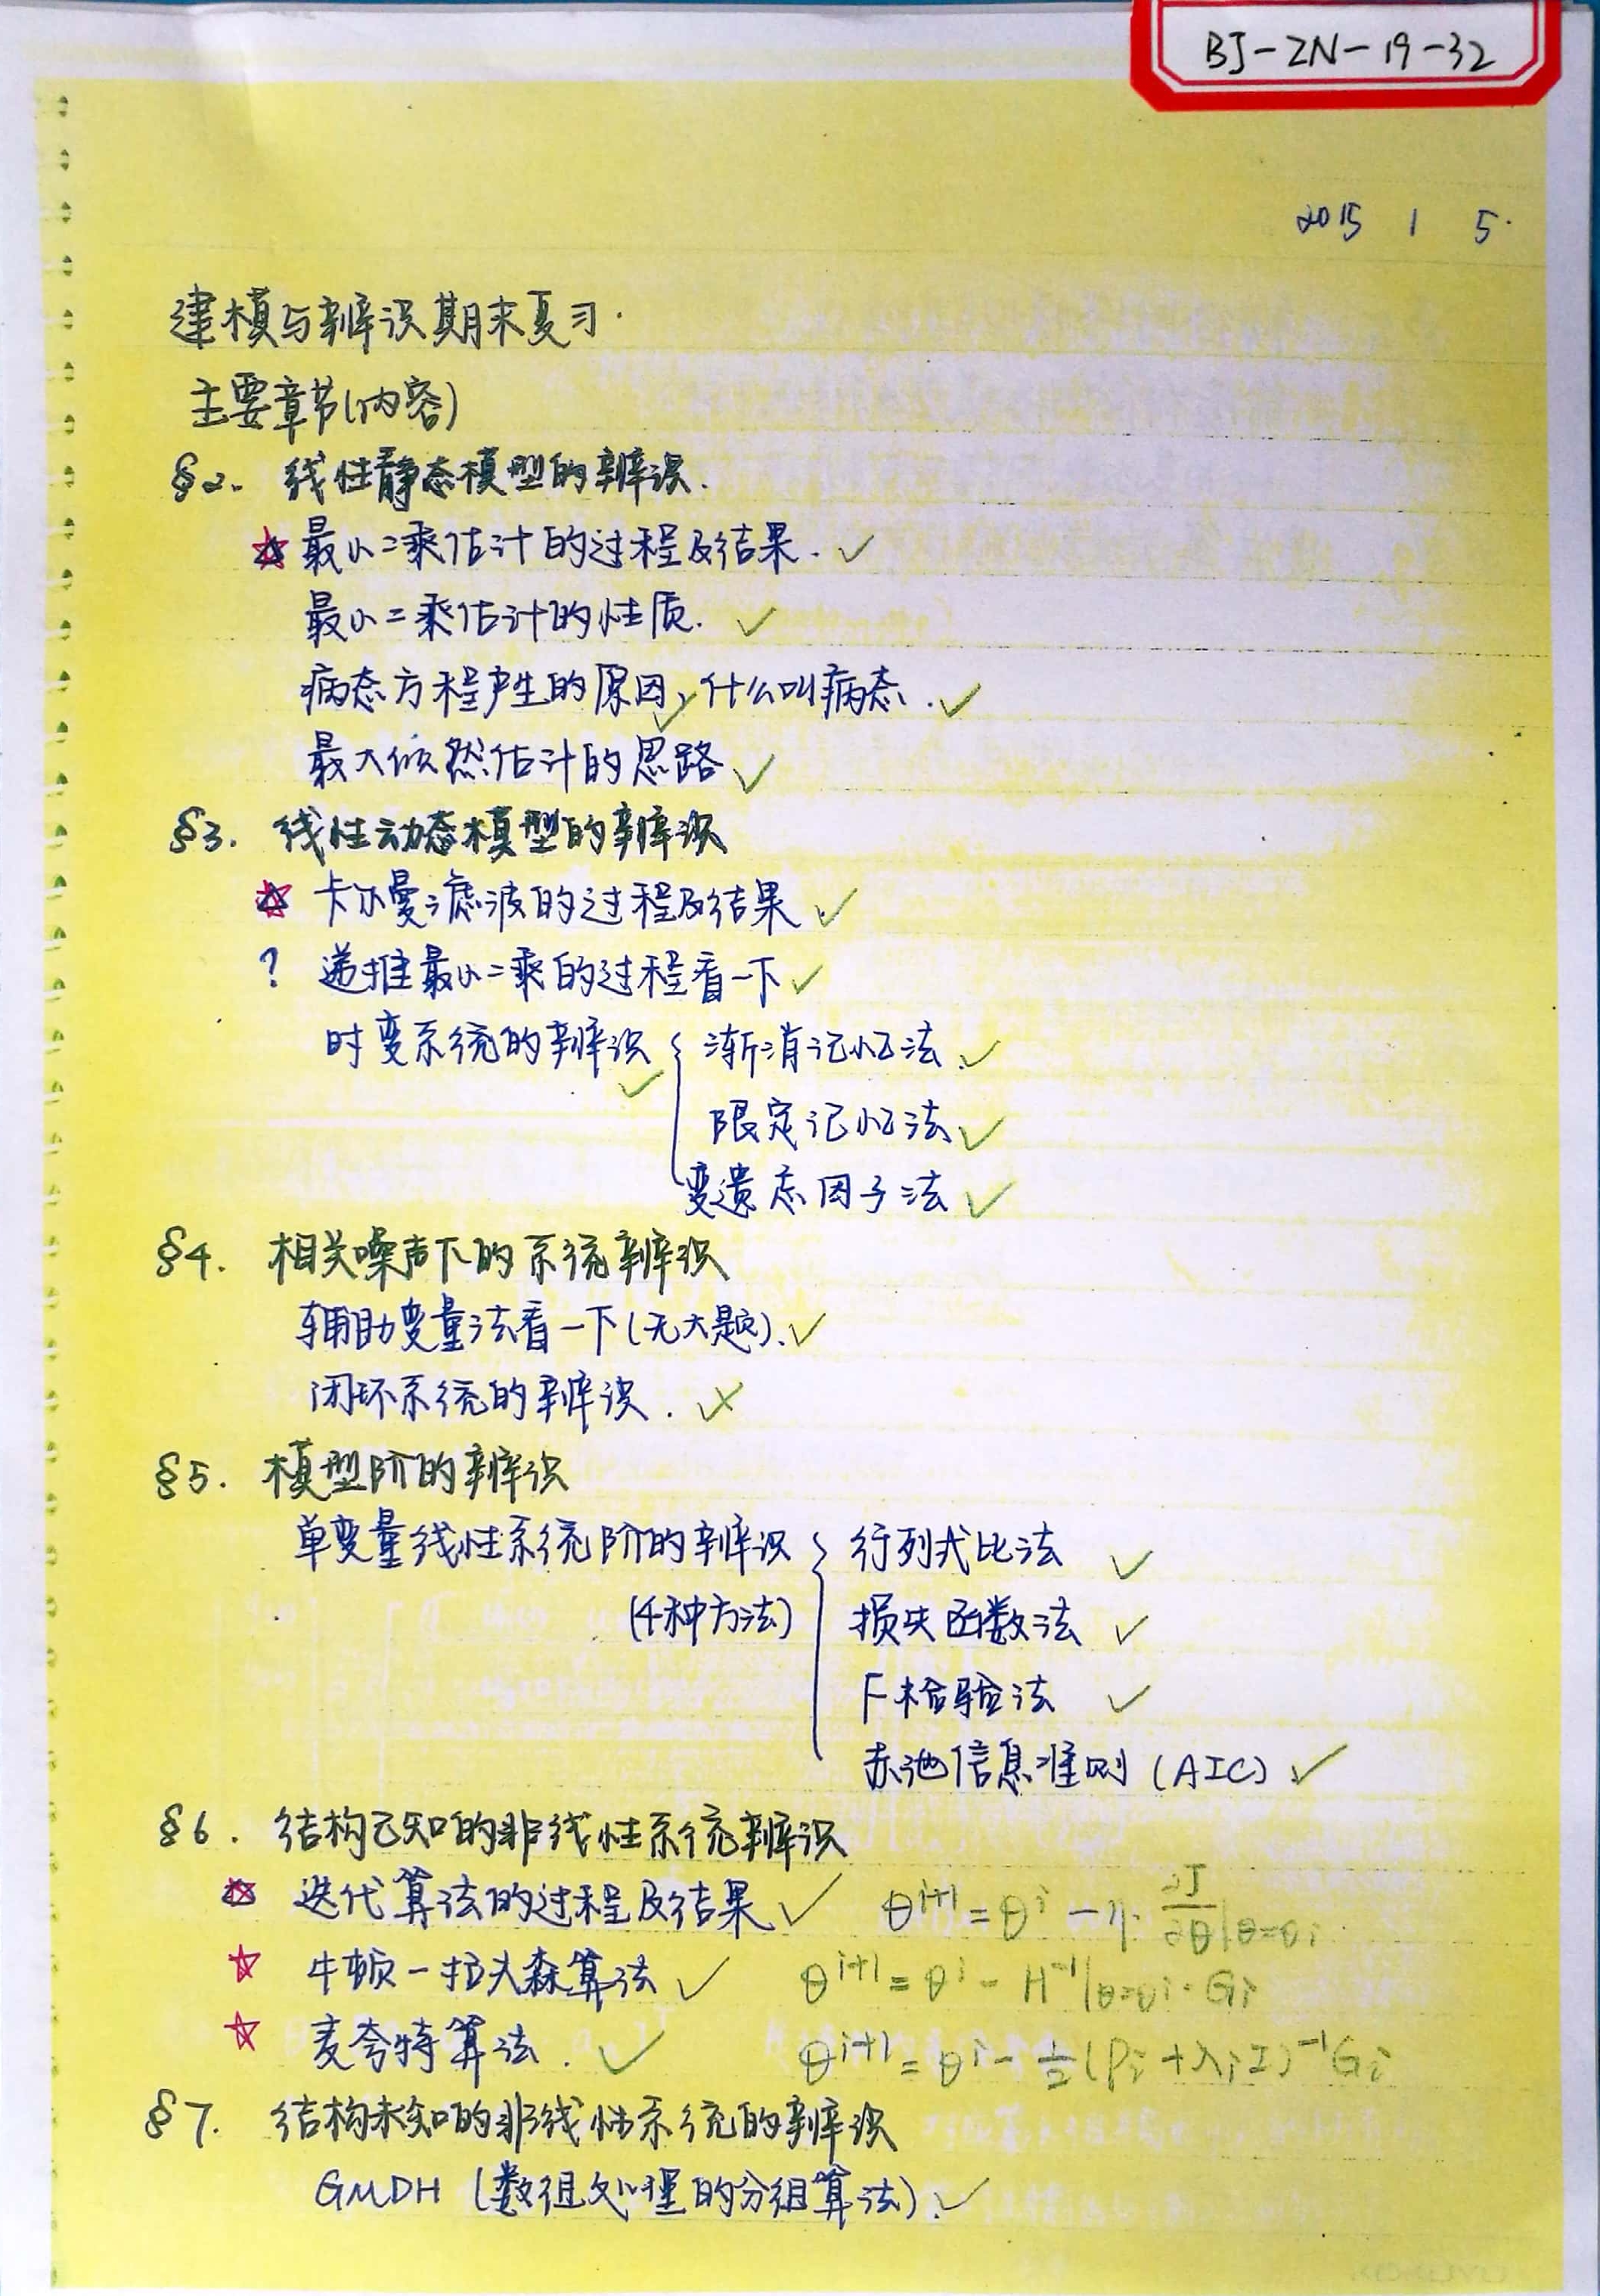 BJ-ZN-19-32
2015 1 5.
建模与辨识期末复习.
主要章节(内容)
§2. 线性静态模型的辨识.
☆ 最小二乘估计的过程及结果. ✓
最小二乘估计的性质. ✓
病态方程产生的原因, ✓ 什么叫病态. ✓
最大似然估计的思路 ✓
§3. 线性动态模型的辨识
☆ 卡尔曼滤波的过程及结果 ✓
? 递推最小二乘的过程看一下 ✓
时变系统的辨识 ✓ { 渐消记忆法. ✓
限定记忆法 ✓
变遗忘因子法 ✓
§4. 相关噪声下的系统辨识
辅助变量法看一下(无大题). ✓
闭环系统的辨识. ✗
§5. 模型阶的辨识
单变量线性系统阶的辨识 { 行列式比法 ✓
(4种方法) 损失函数法 ✓
F检验法 ✓
赤池信息准则 (AIC) ✓
§6. 结构已知的非线性系统辨识
☆ 迭代算法的过程及结果 ✓ θ^{i+1} = θ^i - η· ∂J/∂θ|θ=θi
☆ 牛顿-拉夫森算法 ✓ θ^{i+1} = θ^i - H^{-1}|θ=θi · Gi
☆ 麦夸特算法. ✓ θ^{i+1} = θ^i - 1/2 (Pi + λiI)^{-1} Gi
§7. 结构未知的非线性系统的辨识
GMDH (数组处理的分组算法). ✓